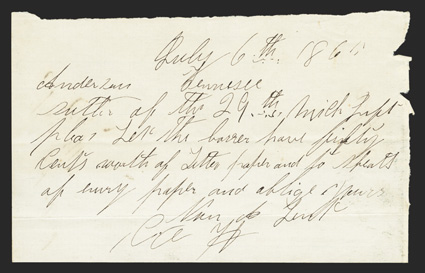 July 6.th. 1865
Anderson Tennesee
sutler of the 29.th. Mich
pleas Let the barer have fifty
Cents worth of Letter paper and
of envy paper and oblige yours
Co